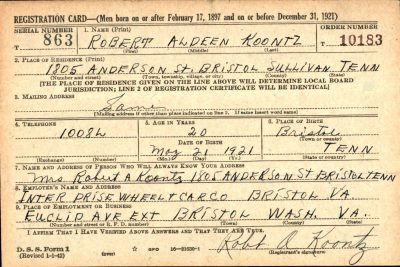 REGISTRATION CARD—(Men born on or after February 17, 1897 and on or before December 31, 1921)
SERIAL NUMBER 1. NAME (Print) ORDER NUMBER
T 863 ROBERT ALDEEN KOONTZ T 10183
(First) (Middle) (Last)
2. PLACE OF RESIDENCE (Print)
1805 ANDERSON ST. BRISTOL SULLIVAN TENN
(Number and street) (Town, township, village, or city) (County) (State)
[THE PLACE OF RESIDENCE GIVEN ON THE LINE ABOVE WILL DETERMINE LOCAL BOARD
JURISDICTION; LINE 2 OF REGISTRATION CERTIFICATE WILL BE IDENTICAL]
3. MAILING ADDRESS
Same
[Mailing address if other than place indicated on line 2. If same insert word same]
4. TELEPHONE 5. AGE IN YEARS 6. PLACE OF BIRTH
20 Bristol
DATE OF BIRTH (Town or county)
May 21 1921 TENN
(Exchange) (Number) (Mo.) (Day) (Yr.) (State or country)
7. NAME AND ADDRESS OF PERSON WHO WILL ALWAYS KNOW YOUR ADDRESS
Mrs. Robert A Koontz 1805 ANDERSON ST BRISTOL TENN
8. EMPLOYER'S NAME AND ADDRESS
INTER PRISE WHEEL & CAR CO BRISTOL VA
9. PLACE OF EMPLOYMENT OR BUSINESS
EUCLID AVE EXT BRISTOL WASH. VA.
(Number and street or R. F. D. number) (Town) (County) (State)
I AFFIRM THAT I HAVE VERIFIED ABOVE ANSWERS AND THAT THEY ARE TRUE.
D. S. S. Form 1
(Revised 1-1-42) GPO Robt A Koontz
(Registrant's signature)